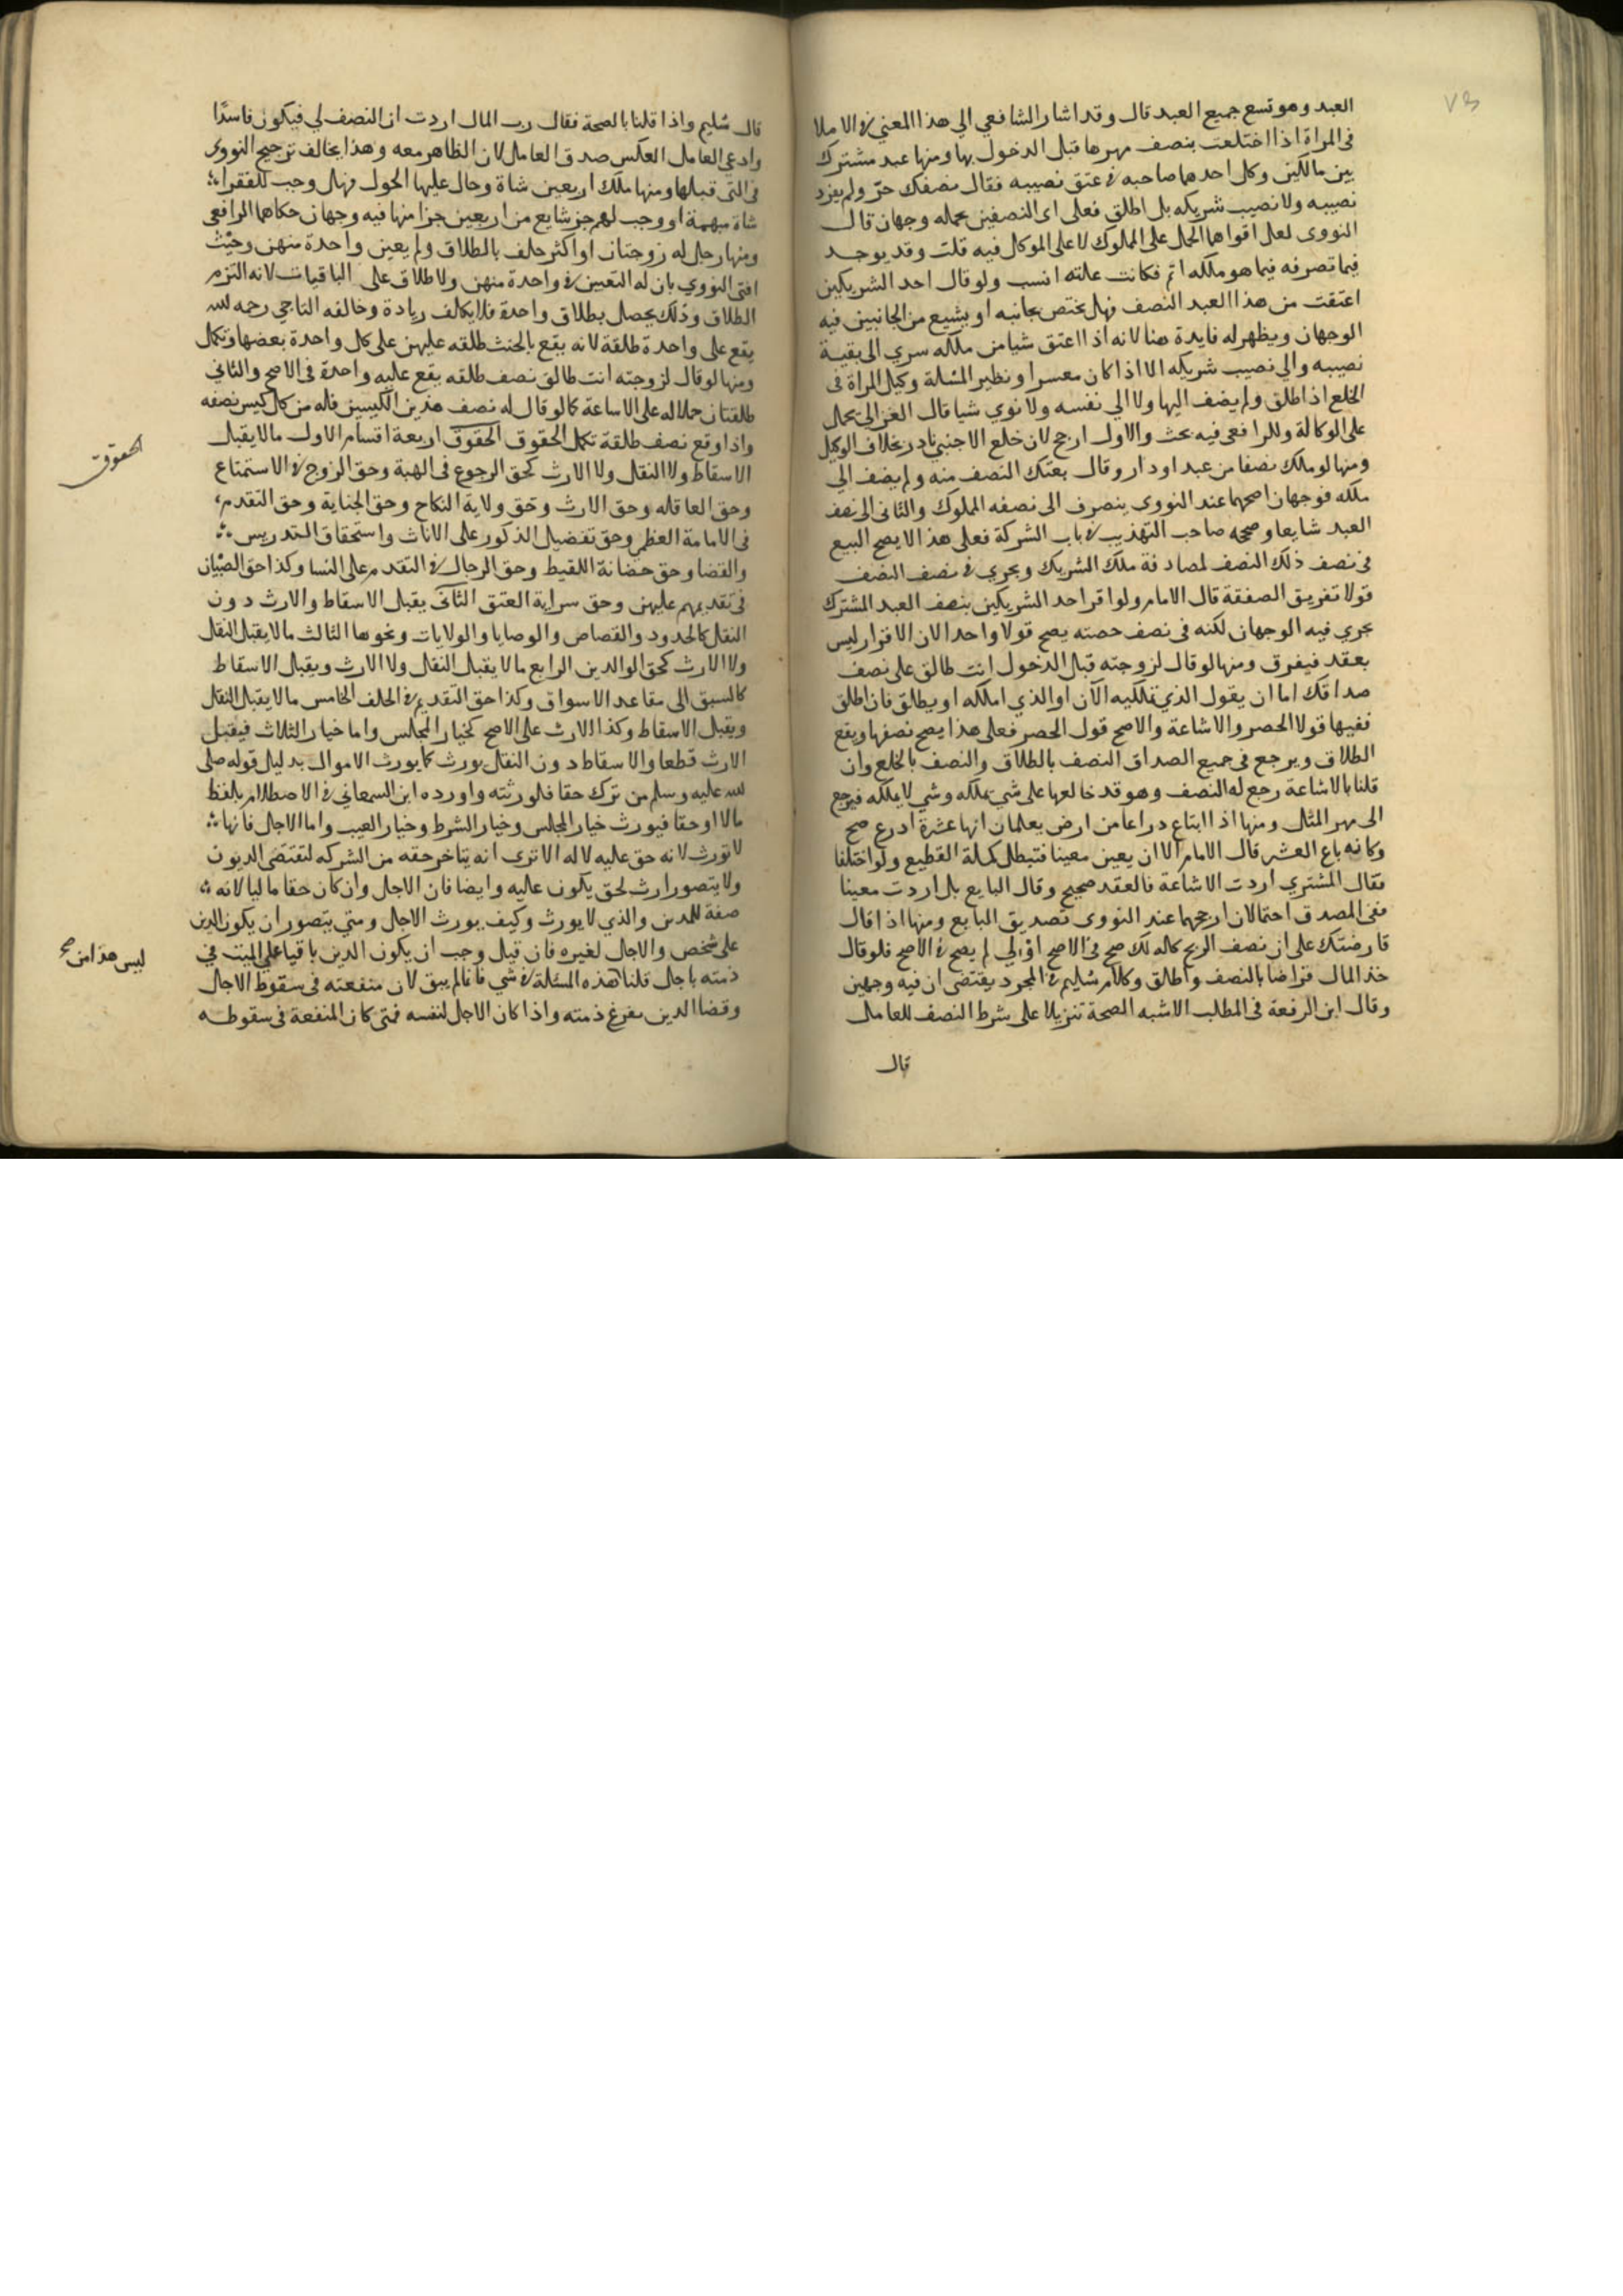 العبد وهو تسع جميع العبد قال وقد اشار الشافعي الي هذا المعني في الاملا
في المراة اذا اختلعت بنصف مهرها قبل الدخول بها ومنها عبد مشترك
بين مالكين وكل احدهما صاحبه في عتق نصيبه فقال نصفك حر ولم يرد
نصيبه ولا نصيب شريكه بل اطلق فعلى اى النصفين يحمله وجهان قال
النووى لعل اقواهما الحمل على المملوك لا على الموكل فيه قلت وقد يوجد
فيما تصرفه فيما هو ملكه اتم فكانت علته انسب ولو قال احد الشريكين
اعتقت من هذا العبد النصف فهل يختص بجانبه او يشيع من الجانبين فيه
الوجهان ويظهر له فايدة هنا لانه اذا اعتق شيا من ملكه سري الى بقية
نصيبه والي نصيب شريكه الا اذا كان معسرا ونظير المسلة وكيل المراة فى
الخلع اذا طلق ولم يضف اليها ولا الي نفسه ولا نوي شيا قال الغزالي يحمل
على الوكالة وللرافعى فيه بحث والاول ارجح لان خلع الاجنبي نادر بخلاف الوكيل
ومنها لو ملك نصفا من عبد او دار وقال بعتك النصف منه ولم يضف الي
ملكه فوجهان اصحهما عند النووى ينصرف الى نصفه المملوك والثانى الى نصف
العبد شايعا وصححه صاحب التهذيب في باب الشركة فعلى هذا لا يصح البيع
فى نصف ذلك النصف لمصادفة ملك الشريك ويجري في نصف النصف
قولا تفريق الصفقة قال الامام ولو اقر احد الشريكين بنصف العبد المشترك
يجري فيه الوجهان لكنه فى نصف حصته يصح قولا واحدا لان الاقرار ليس
بعقد فيفرق ومنها لو قال لزوجته قبل الدخول انت طالق على نصف
صداقك اما ان يقول الذي تملكيه الان او الذي املكه او يطلق فان اطلق
ففيها قولا الحصر والاشاعة والاصح قول الحصر فعلى هذا يصح نصفها ويقع
الطلاق ويرجع فى جميع الصداق النصف بالطلاق والنصف بالخلع وان
قلنا بالاشاعة رجع له النصف وهو قد خالعها على شي يملكه وشي لا يملكه فيرجع
الى مهر المثل ومنها اذا ابتاع دراعا من ارض يعلمان انها عشرة ادرع صح
وكانه باع العشر قال الامام الا ان يعين معينا فتبطل كمسلة القطيع ولو اختلفا
فقال المشتري اردت الاشاعة فالعقد صحيح وقال البايع بل اردت معينا
فمن المصدق احتمالان ارجحهما عند النووى تصديق البايع ومنها اذا قال
قارضتك على ان نصف الربح كاله لك صح فى الاصح او لي لم يصح في الاصح فلو قال
خذ المال قراضا بالنصف واطلق وكلام سليم في المجرد يقتضى ان فيه وجهين
وقال ابن الرفعة فى المطلب الاشبه الصحة تنزيلا على شرط النصف للعامل
قال
قال سليم واذا قلنا بالصحة فقال رب المال اردت ان النصف لي فيكون فاسدا
وادعى العامل العكس صدق العامل لان الظاهر معه وهذا يخالف ترجيح النووى
فى التى قبلها ومنها ملك اربعين شاة وحال عليها الحول فهل وجب للفقرا
شاة مبهمة او وجب لهم جز شايع من اربعين جزا منها فيه وجهان حكاهما الرافعى
ومنها رجل له زوجتان او اكثر حلف بالطلاق ولم يعين واحدة منهن وحنث
افتى النووي بان له التعيين في واحدة منهن ولا طلاق على الباقيات لانه التزم
الطلاق وذلك يحصل بطلاق واحدة فلا يكالف زيادة وخالفه التاجي رحمه الله
يقع على واحدة طلقة لانه يقع بالحنث طلقه عليهن على كل واحدة بعضها وتكمل
ومنها لو قال لزوجته انت طالق نصف طلقه يقع عليه واحدة فى الاصح والثاني
طلقتان حملا له على الاساعة كما لو قال له نصف هذين الكيسين فله من كل كيس نصفه
واذا وقع نصف طلقة تكمل الحقوق الحقوق اربعة اقسام الاول ما لا يقبل
الاسقاط ولا النقل ولا الارث كحق الرجوع فى الهبة وحق الزوج في الاستمتاع
وحق العاقله وحق الارث وحق ولاية النكاح وحق الجناية وحق التقدم
فى الامامة العظمي وحق تفضيل الذكور على الاناث واستحقاق التدريس
والقضا وحق حضانة اللقيط وحق الرجال في التقدم على النسا وكذا حق الصبيان
فى تقديمهم عليهن وحق سراية العتق الثانى يقبل الاسقاط والارث دون
النقل كالحدود والقصاص والوصايا والولايات ونحوها الثالث ما لا يقبل النقل
ولا الارث كحق الوالدين الرابع ما لا يقبل النقل ولا الارث ويقبل الاسقاط
كالسبق الى مقاعد الاسواق وكذا حق التقديم في الحلف الخامس ما لا يقبل النقل
ويقبل الاسقاط وكذا الارث على الاصح كخيار المجلس واما خيار الثلاث فيقبل
الارث قطعا والاسقاط دون النقل يورث كما يورث الاموال بدليل قوله صلى
الله عليه وسلم من ترك حقا فلورثته واورده ابن السمعاني في الاصطلام بلفظ
مالا او حقا فيورث خيار المجلس وخيار الشرط وخيار العيب واما الاجل فانها
لا تورث لانه حق عليه لا له الا ترى انه يتاخر حقه من الشركه لتقتضى الديون
ولا يتصور ارث لحق يكون عليه وايضا فان الاجل وان كان حقا ماليا لانه
صفة للدين والذي لا يورث وكيف يورث الاجل ومتي يتصور ان يكون الدين
على شخص والاجل لغيره فان قيل وجب ان يكون الدين باقيا على الميت في
ذمته باجل قلنا هذه المسئلة في شي فانما لم يبق لان منفعته فى سقوط الاجل
وقضا الدين يفرغ ذمته واذا كان الاجل لنفسه فمتى كان المنفعة فى سقوطه
الحقوق
ليس هذا من صح